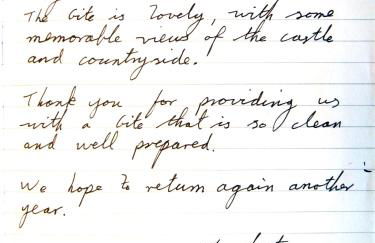 The Gite is lovely, with some
memorable views of the castle
and countryside.
Thank you for providing us
with a Gite that is so clean
and well prepared.
We hope to return again another
year.